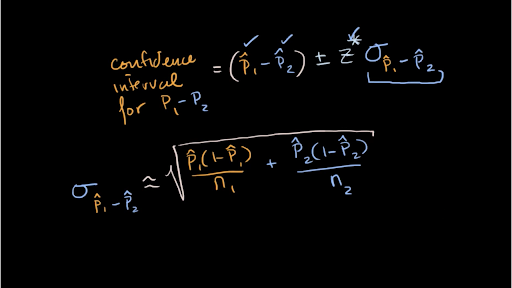 confidence
interval = (p̂₁ - p̂₂) ± z* σ p̂₁ - p̂₂
for P₁ - P₂
σ p̂₁ - p̂₂ ≈ √( p̂₁(1-p̂₁)/n₁ + p̂₂(1-p̂₂)/n₂ )